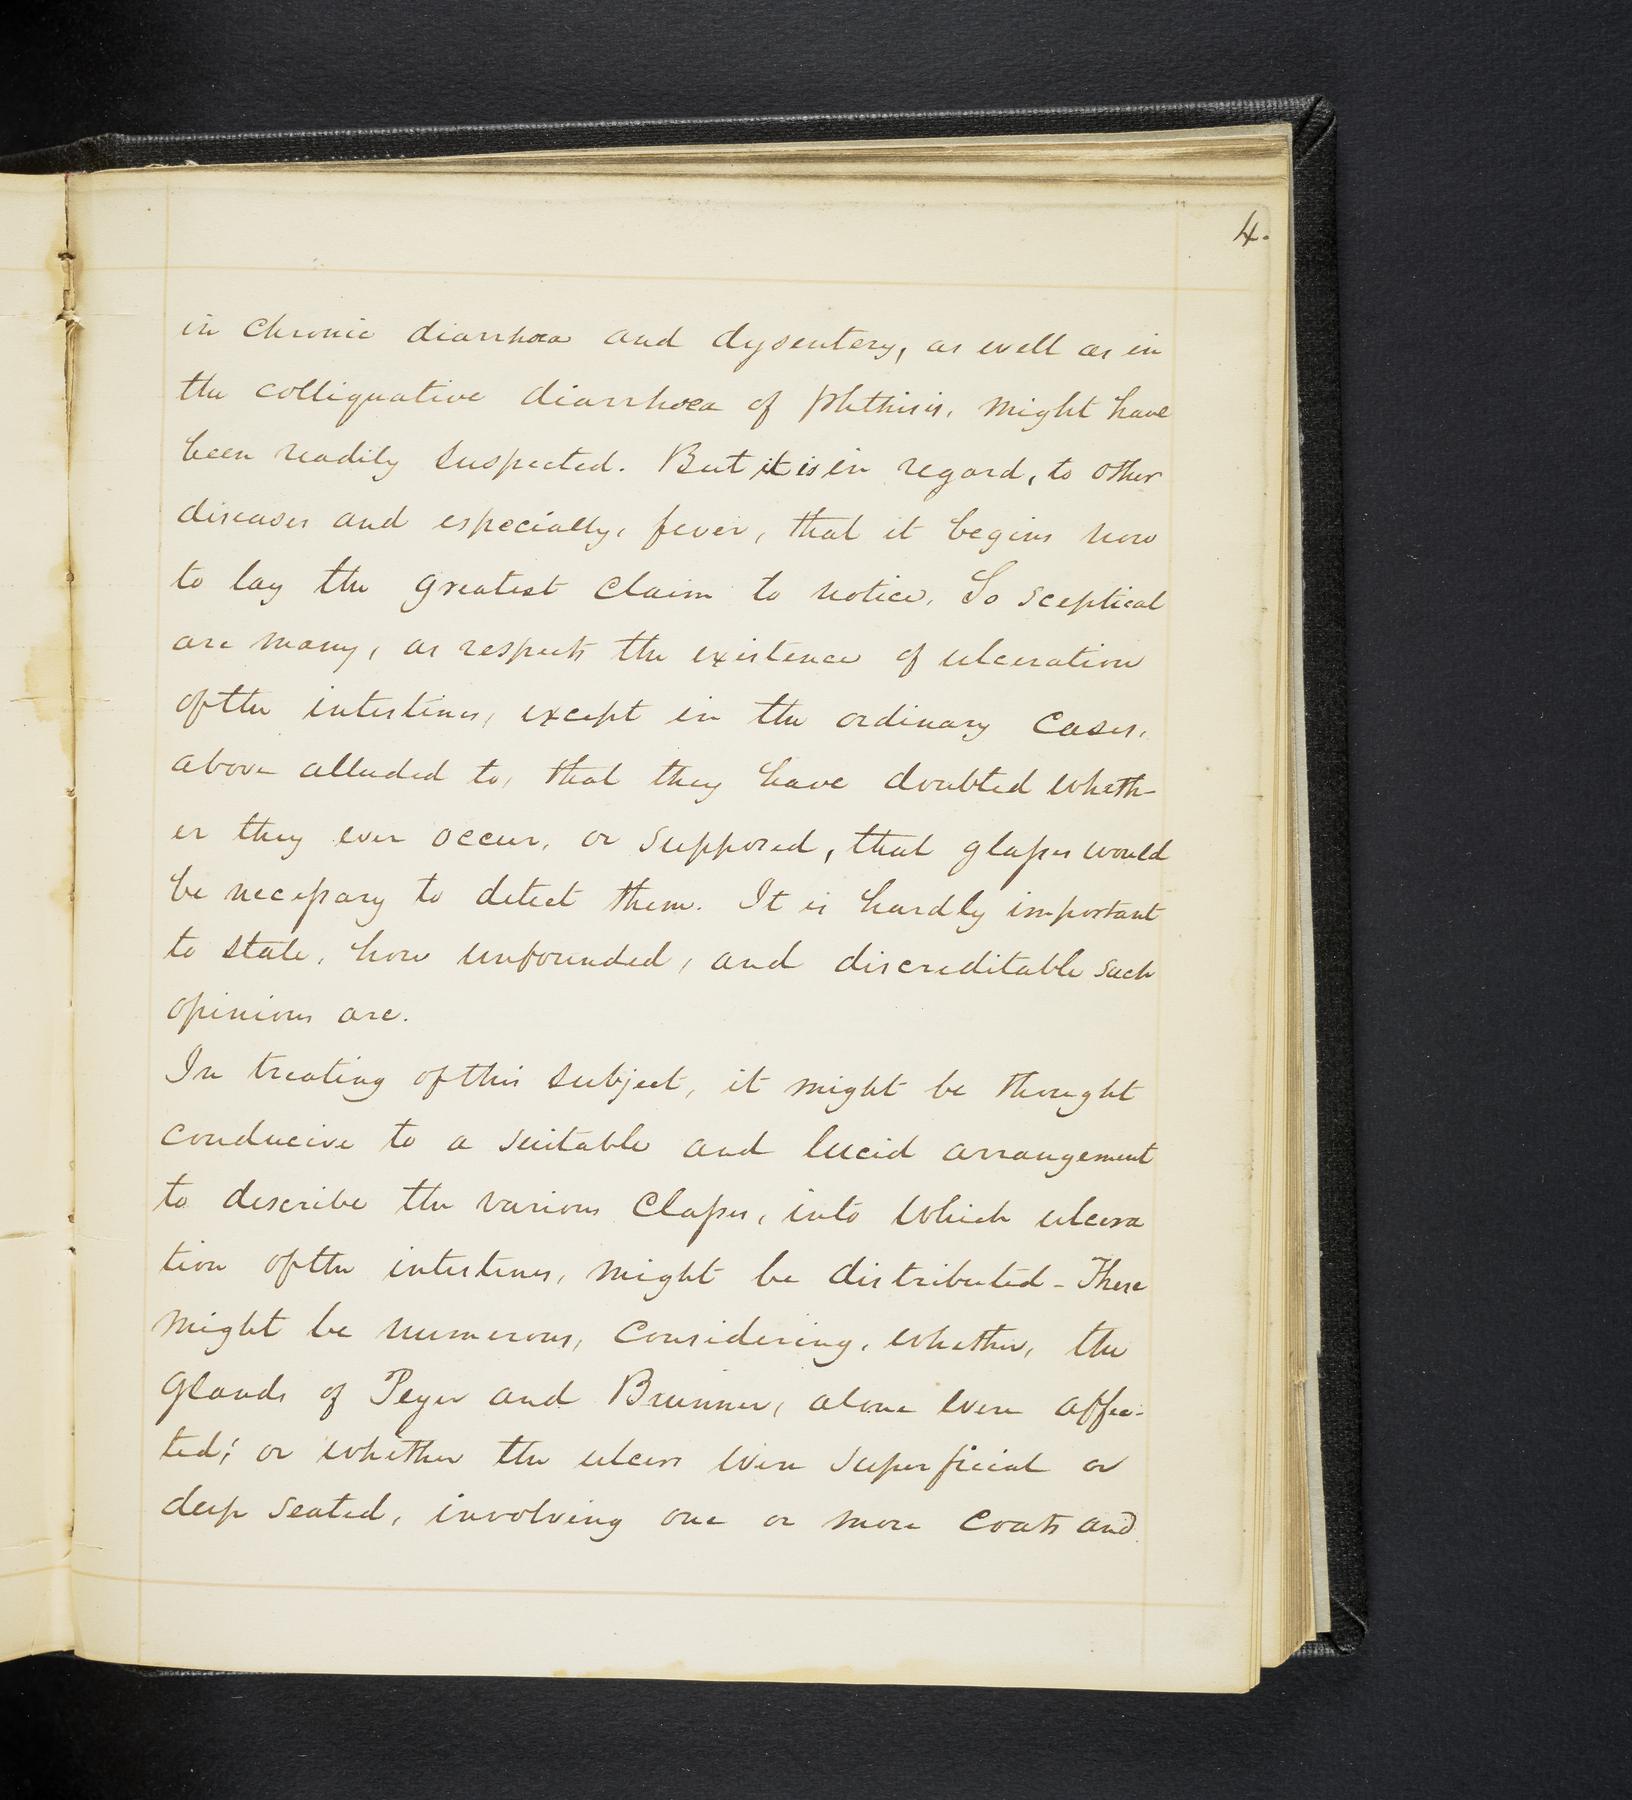 4.
in chronic diarrhoea and dysentery, as well as in
the colliquative diarrhoea of phthisis, might have
been readily suspected. But it is in regard, to other
diseases and especially, fever, that it begins now
to lay the greatest claim to notice. So sceptical
are many, as respects the existence of ulceration
of the intestines, except in the ordinary cases,
above alluded to, that they have doubted wheth-
er they ever occur, or supposed, that glasses would
be necessary to detect them. It is hardly important
to state, how unfounded, and discreditable such
opinions are.
In treating of this subject, it might be thought
conducive to a suitable and lucid arrangement
to describe the various classes, into which ulcera
tion of the intestines, might be distributed - These
might be numerous, considering, whether, the
glands of Peyer and Brunner, alone were affec-
ted; or whether the ulcers were superficial or
deep seated, involving one or more coats and